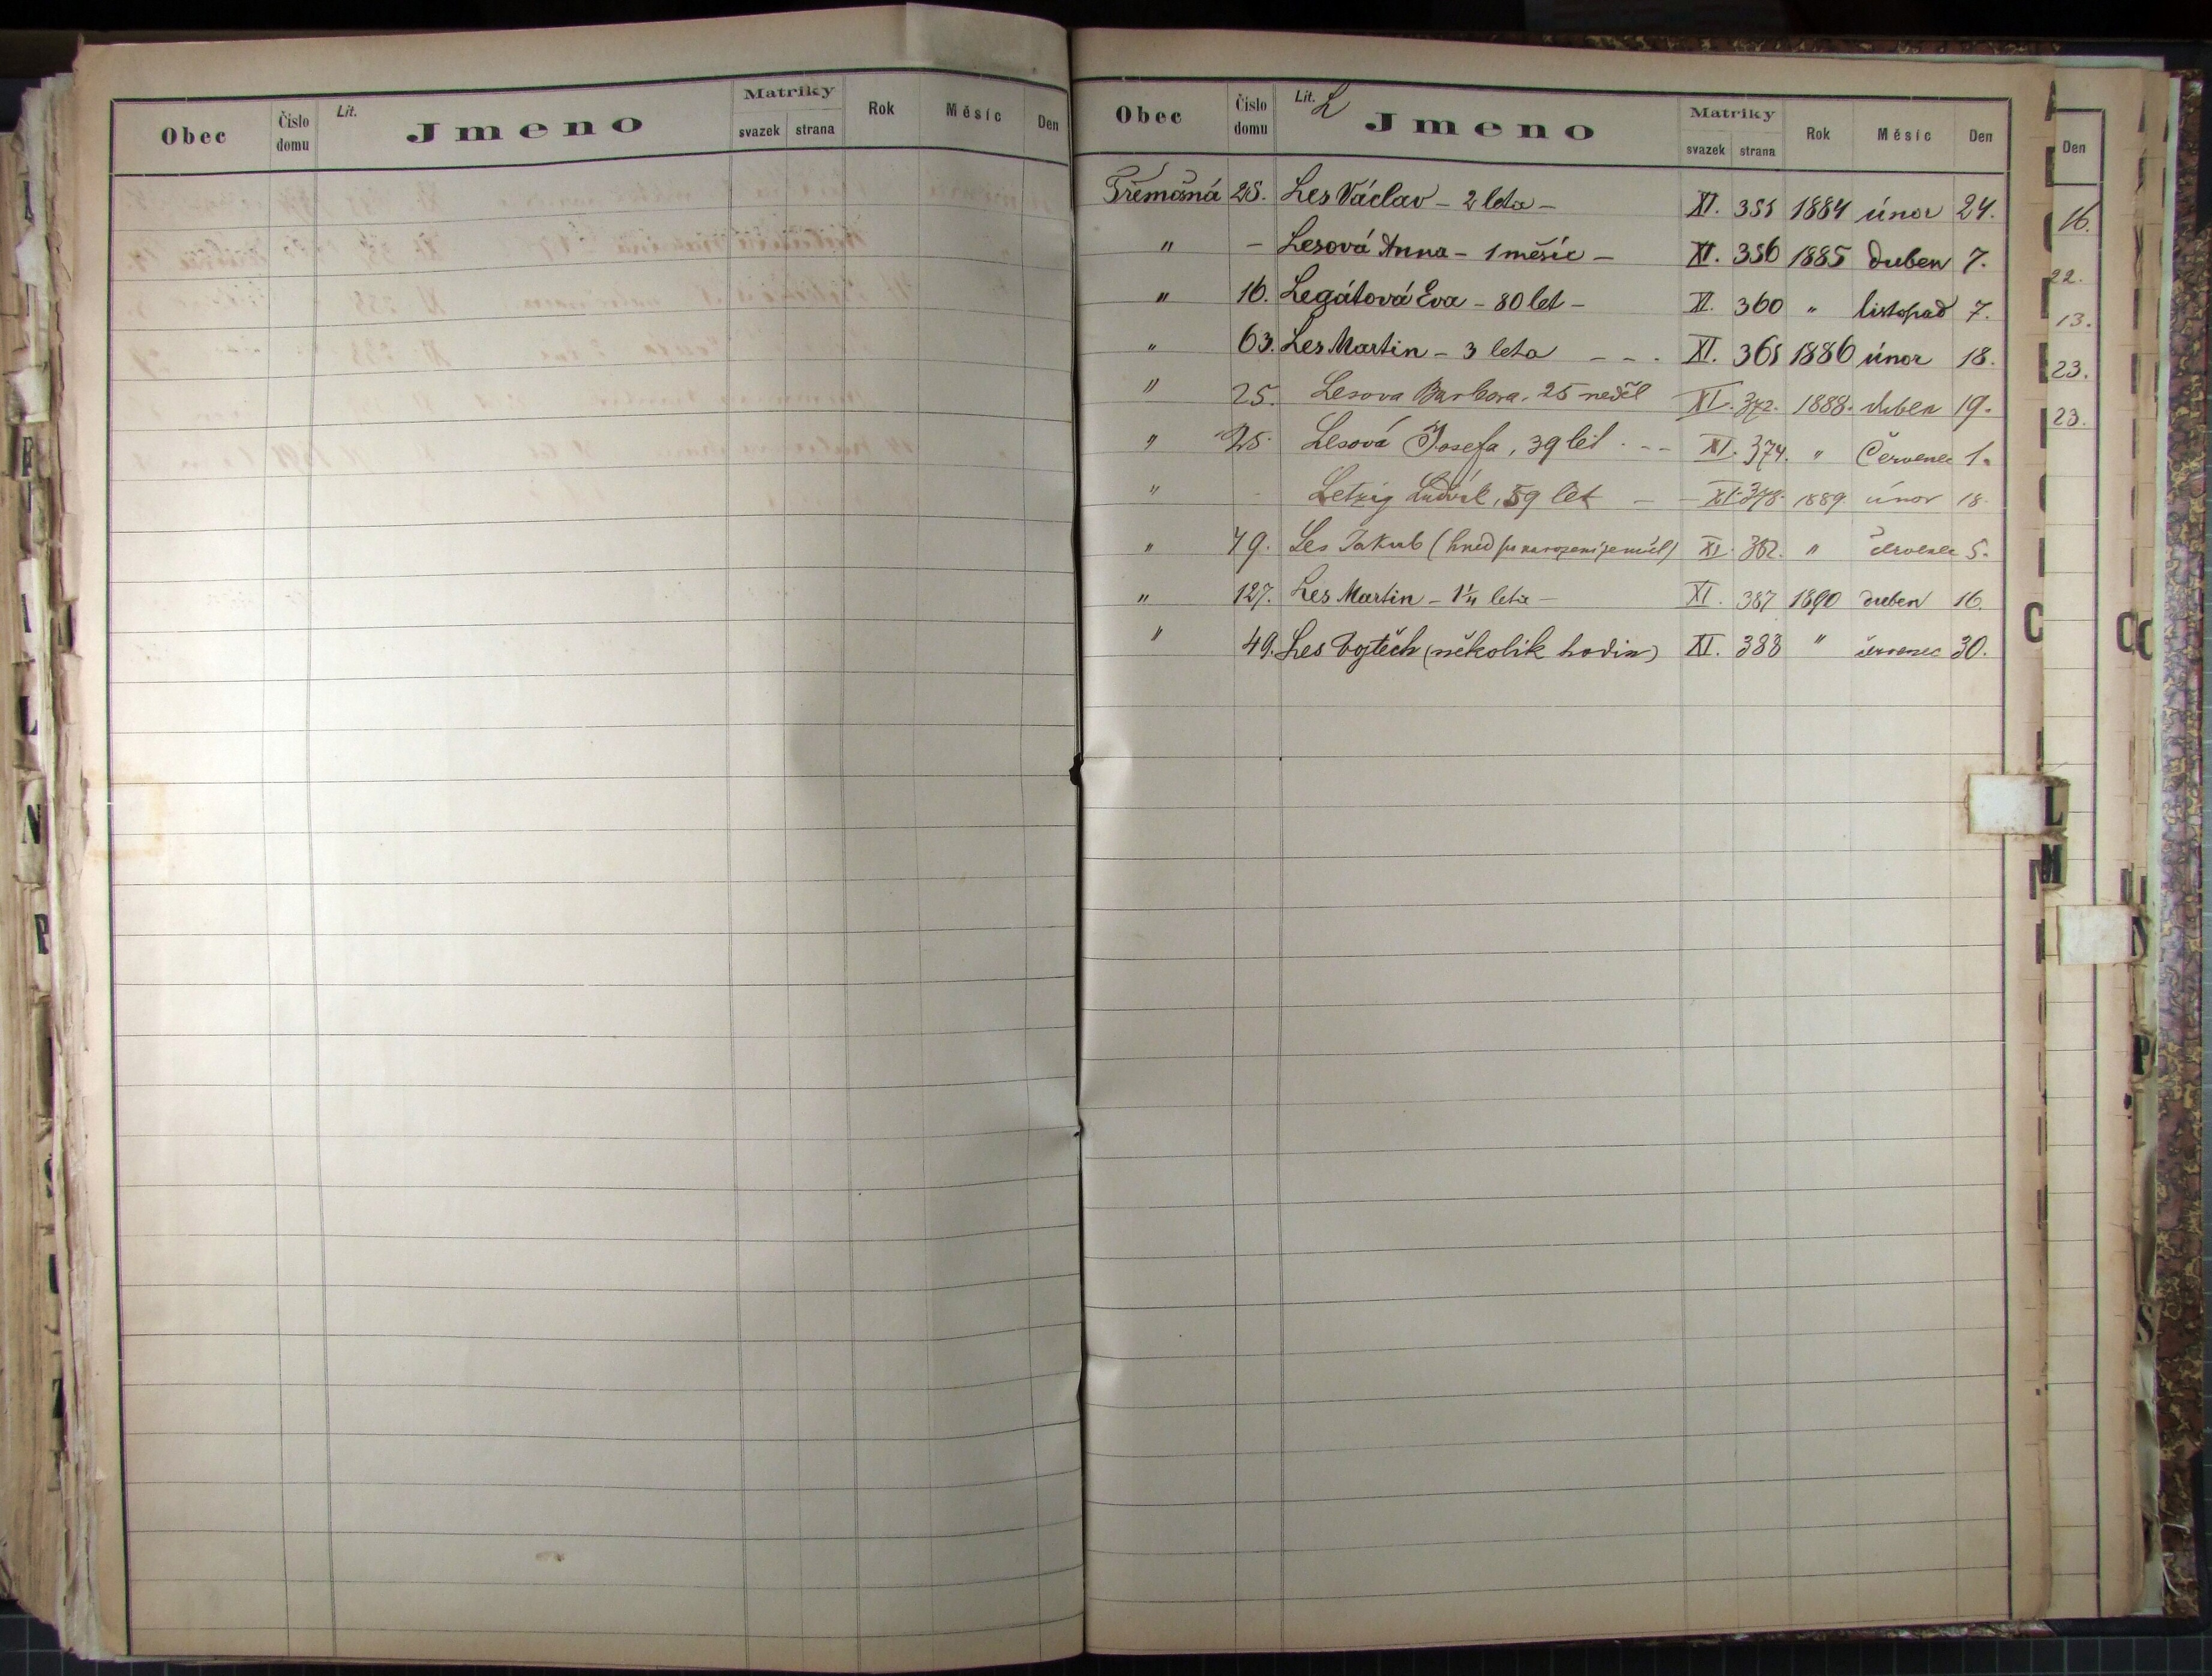 Obec Číslo domu Lit. Jmeno Matriky svazek strana Rok Měsíc Den
Obec Číslo domu Lit. L Jmeno Matriky svazek strana Rok Měsíc Den
Třemošná 25. Les Václav - 2 leta - XI. 351 1884 únor 24.
" - Lesová Anna - 1 měsíc - XI. 356 1885 duben 7.
" 16. Legátová Eva - 80 let - XI. 360 " listopad 7.
" 63. Les Martin - 3 leta - - . XI. 361 1886 únor 18.
" 25. Lesova Barbora, 25 neděl XI. 372. 1888. duben 19.
" 25. Lesová Josefa, 39 let . - - XI. 374. " Červenec 1.
" - Letzig Ludvík, 59 let - - XI. 378. 1889. únor 18.
" 49. Les Jakub (hned po narození zemřel) XI. 382. " červenec 5.
" 127. Les Martin - 1¼ leta - XI. 387 1890 duben 16.
" 49. Les Vojtěch (několik hodin) XI. 388 " červenec 30.
Den
16.
22.
13.
23.
23.
L
M
N
P
S
N
P